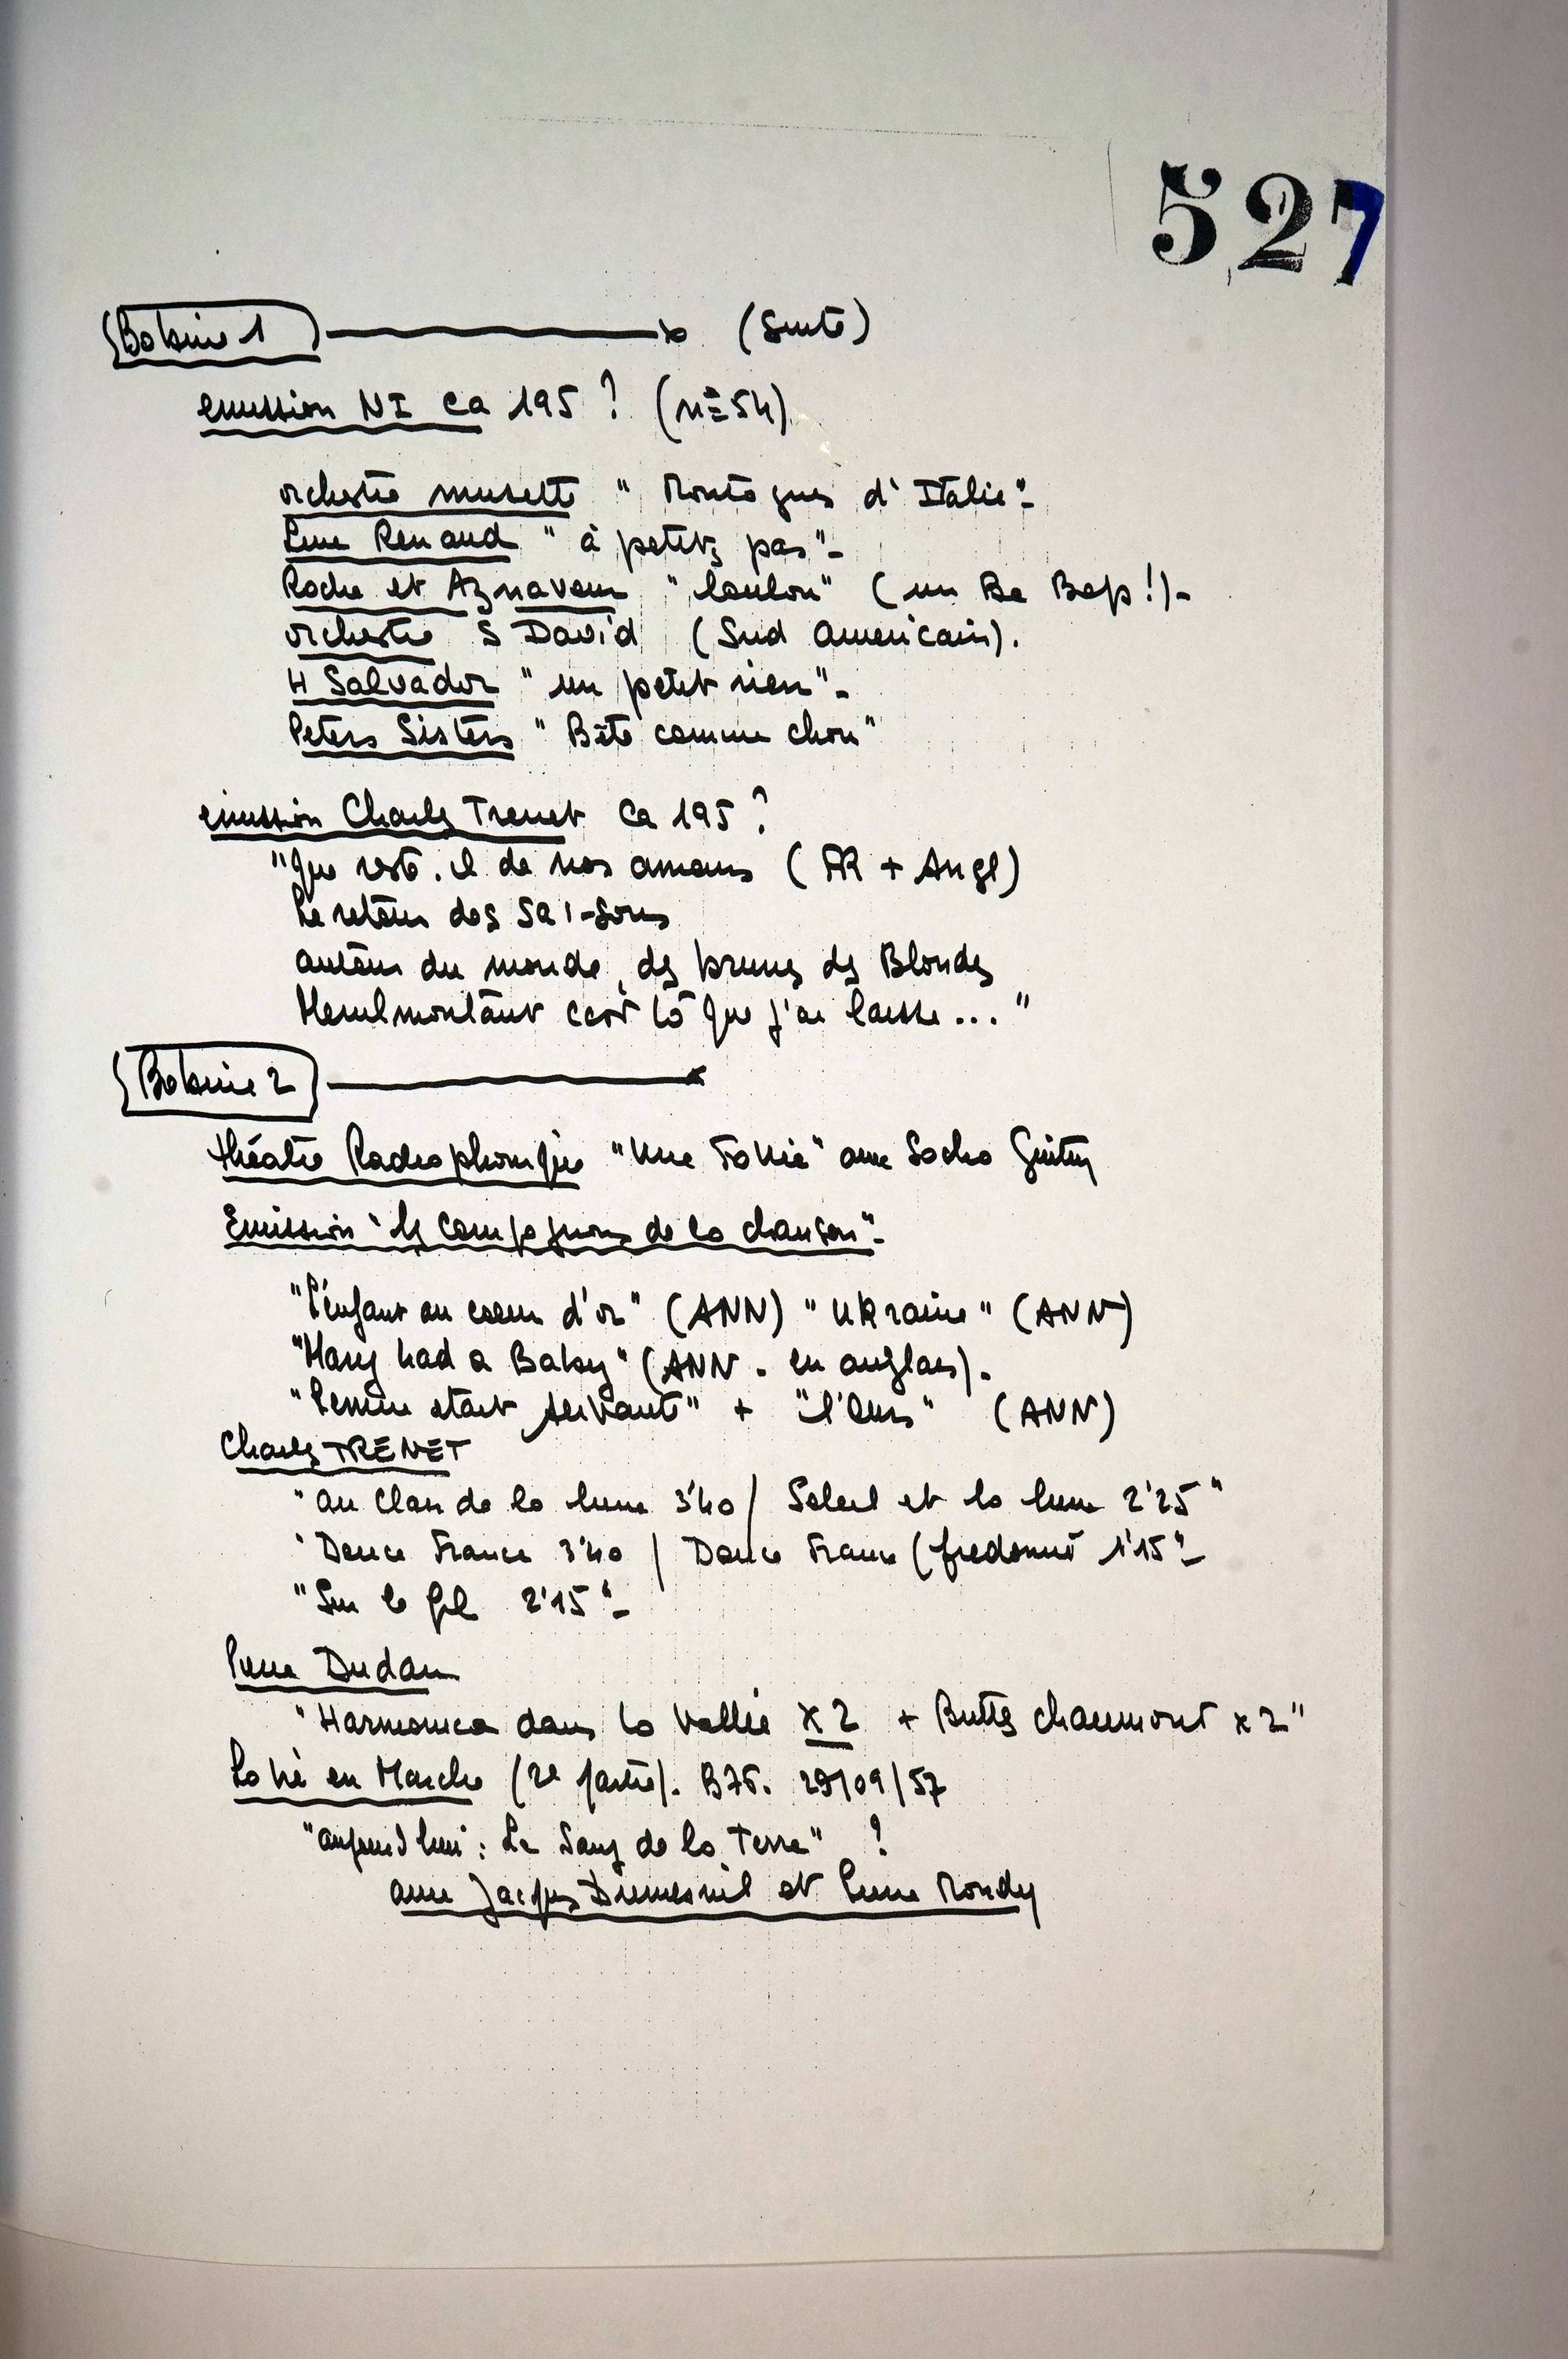 527
Bobine 1 (Suite)
emission NI ca 195? (n=54)
orchestre musette "Montagnes d'Italie"-
Line Renaud "à petits pas"-
Roche et Aznavour "loulou" (un Be Bop!)-
orchestre S David (Sud Americain).
H Salvador "un petit rien"-
Peters Sisters "Bête comme chou"
emission Charles Trenet ca 195?
"Que reste.il de nos amours (FR + Angl)
Le retour des saisons
autour du monde, des brunes des Blondes
Menilmontant c'est là que j'ai laissé..."
Bobine 2
théatre Radiophonique "Une Folie" avec Sacha Guitry
Emission "les compagnons de la chanson"-
"L'enfant au coeur d'or" (ANN) "Ukraine" (ANN)
"Mary had a Baby" (ANN. en anglais).
"Perrine était servante" + "l'ours" (ANN)
Charles TRENET
"au Clair de la lune 3'40 / Soleil et la lune 2'25"
"Douce France 3'40 / Douce France (fredonné 1'15"-
"Sur le fil 2'15"-
Pierre Dudan
"Harmonica dans la Vallée x2 + Buttes chaumont x2"
La vie en Marche (2e partie). B76. 29/09/57
"aujourd'hui: Le Sang de la Terre" ?
avec Jacques Dumesnil et Pierre Mondy